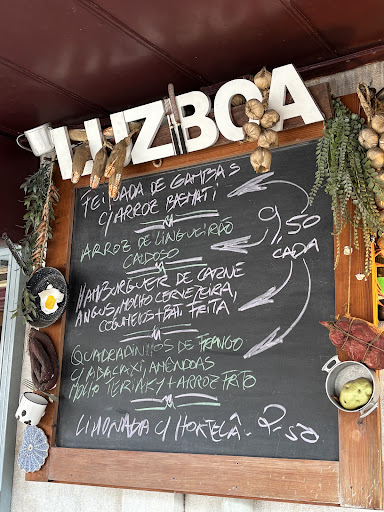 LUZBOA
FEIJOADA DE GAMBAS
C/ ARROZ BASMATI
ARROZ DE LINGUEIRÃO
CALDOSO
9,50
CADA
HAMBURGUER DE CARNE
ANGUS, MOLHO CERVEJEIRA,
COGUMELOS + BAT. FRITA
QUADRADINHOS DE FRANGO
C/ ABACAXI, AMÊNDOAS
MOLHO TERIAKY + ARROZ FRITO
LIMONADA C/ HORTELÃ - 2,50